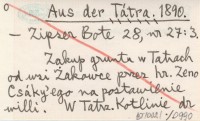 Aus der Tátra. 1890.
— Zipser Bote 28, nr 27:3.
Zakup gruntu w Tatrach
od wsi Żakowce przez hr. Zeno
Csáky'ego na postawienie
willi. W Tatrz. Kotlinie dr